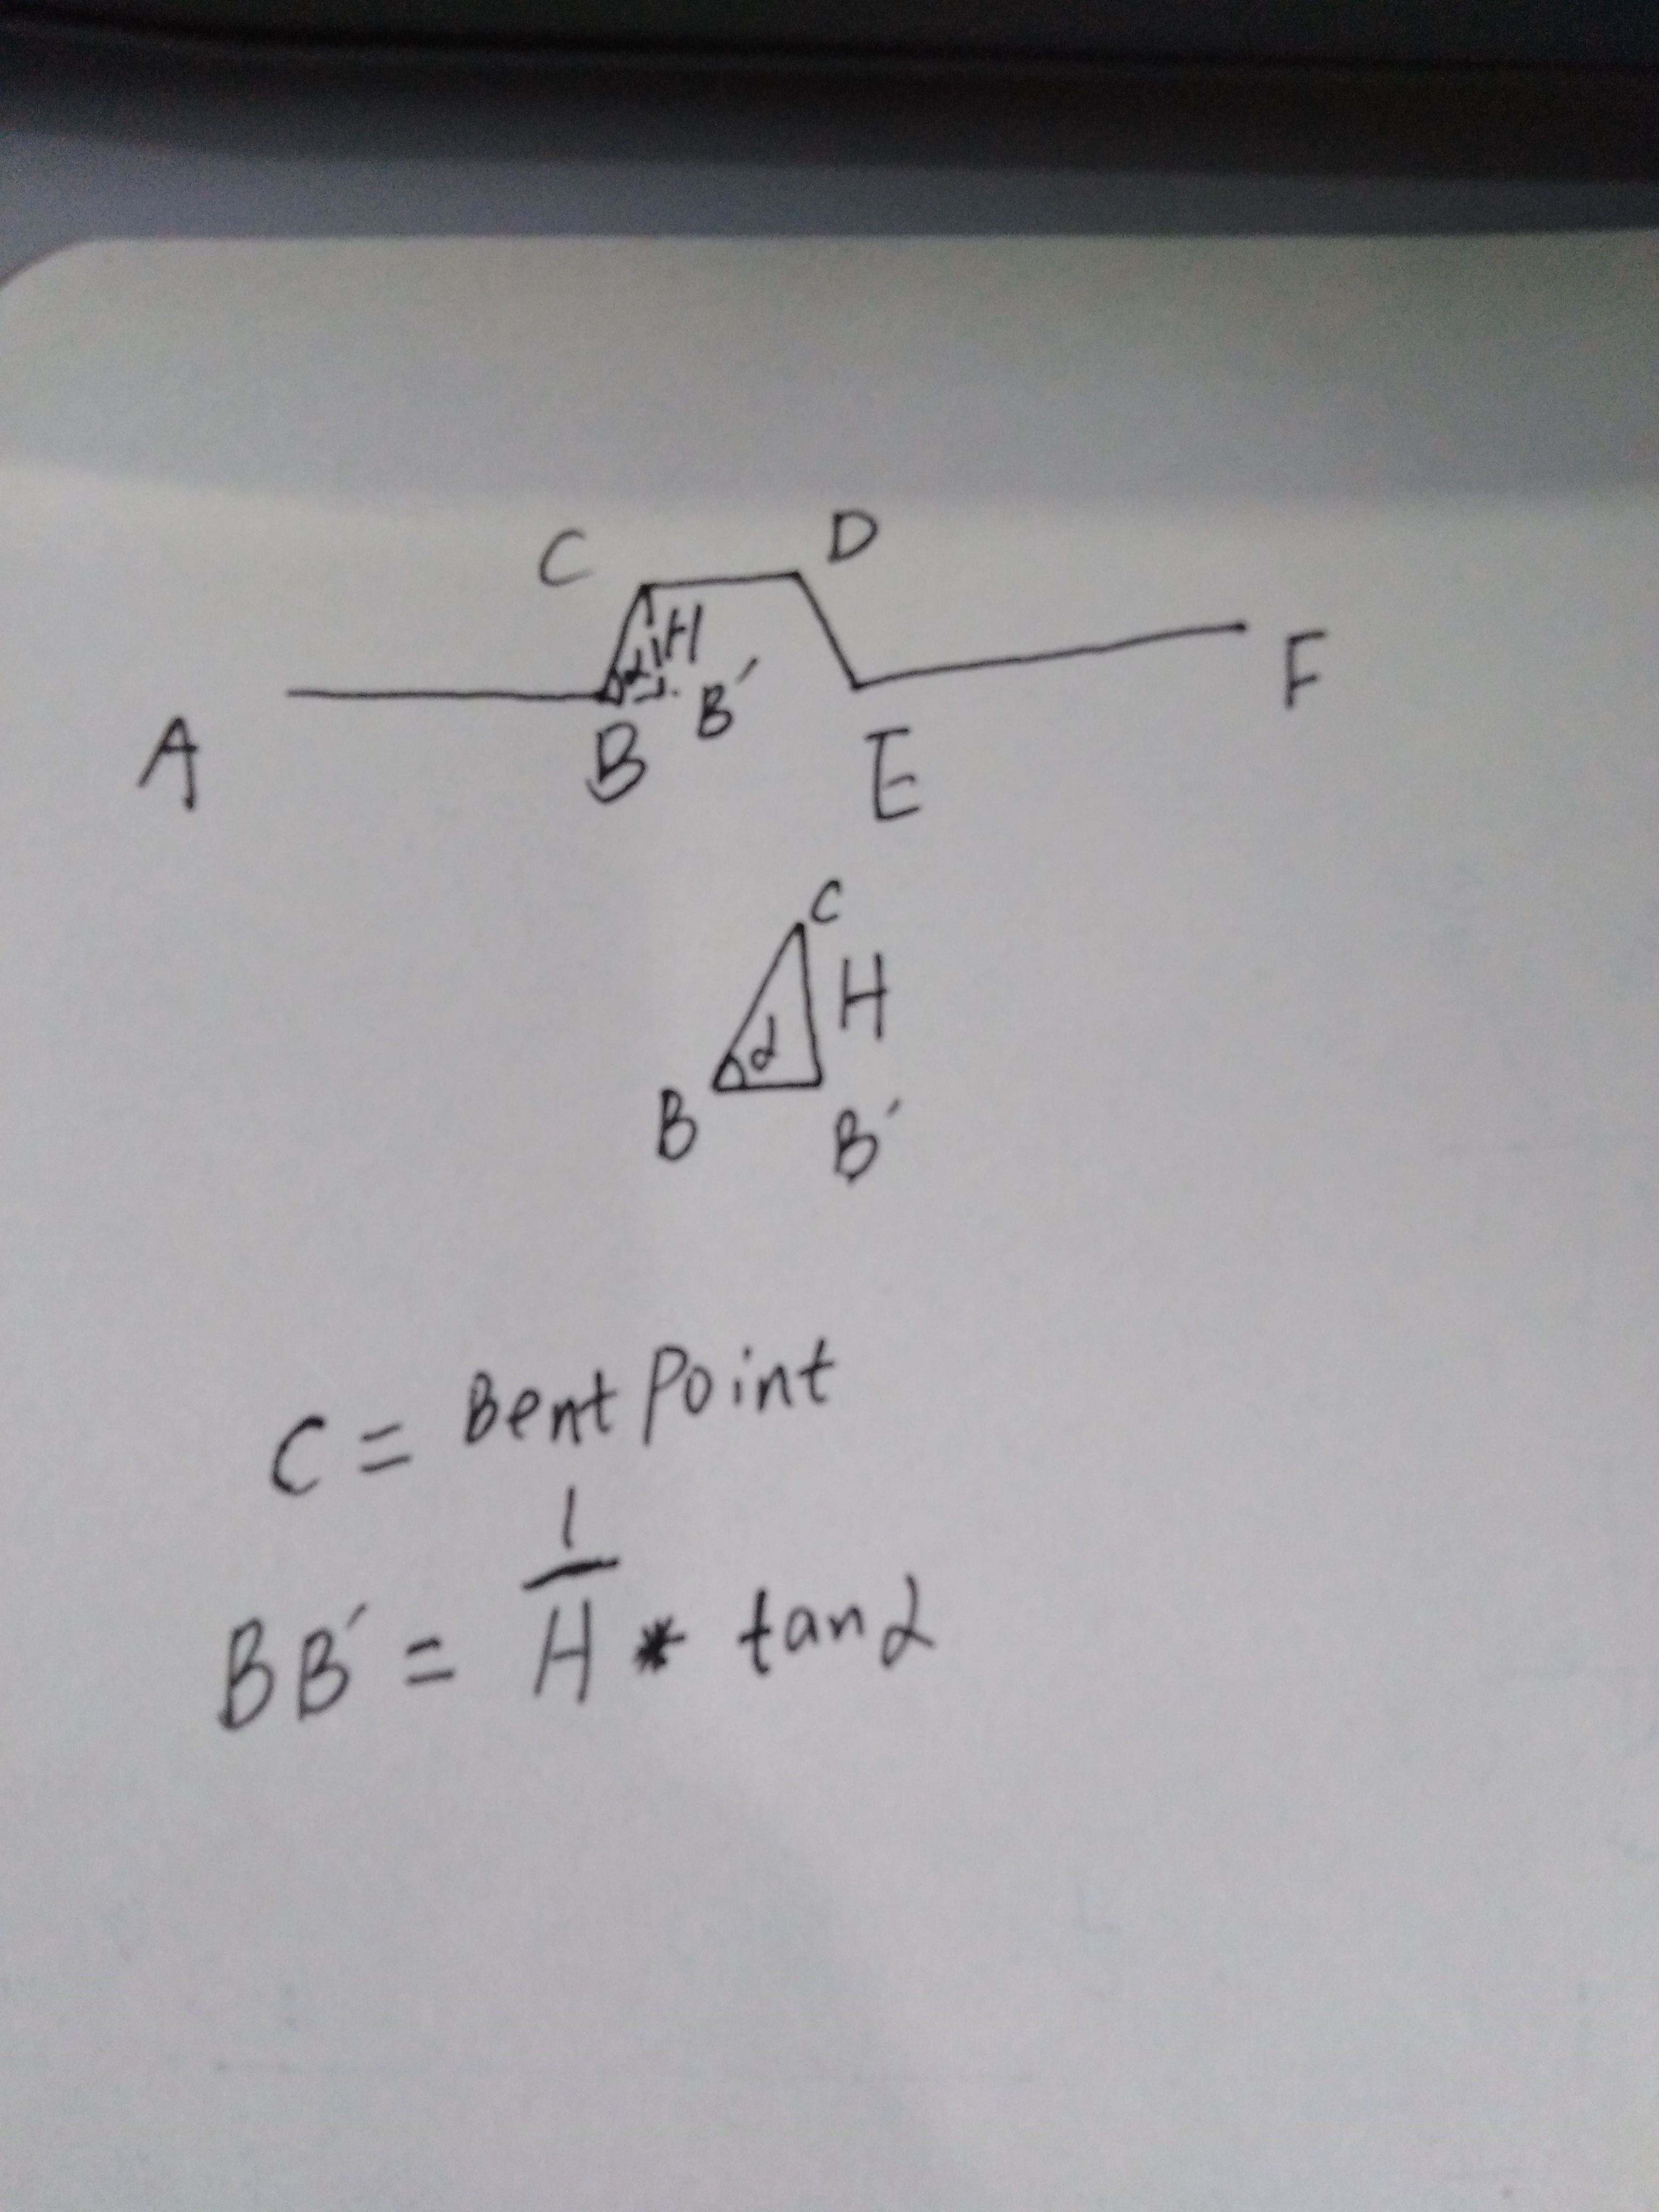 C D
H
α
A B B′ E F
C
α H
B B′
C = Bent Point
1
BB′ = H * tan α